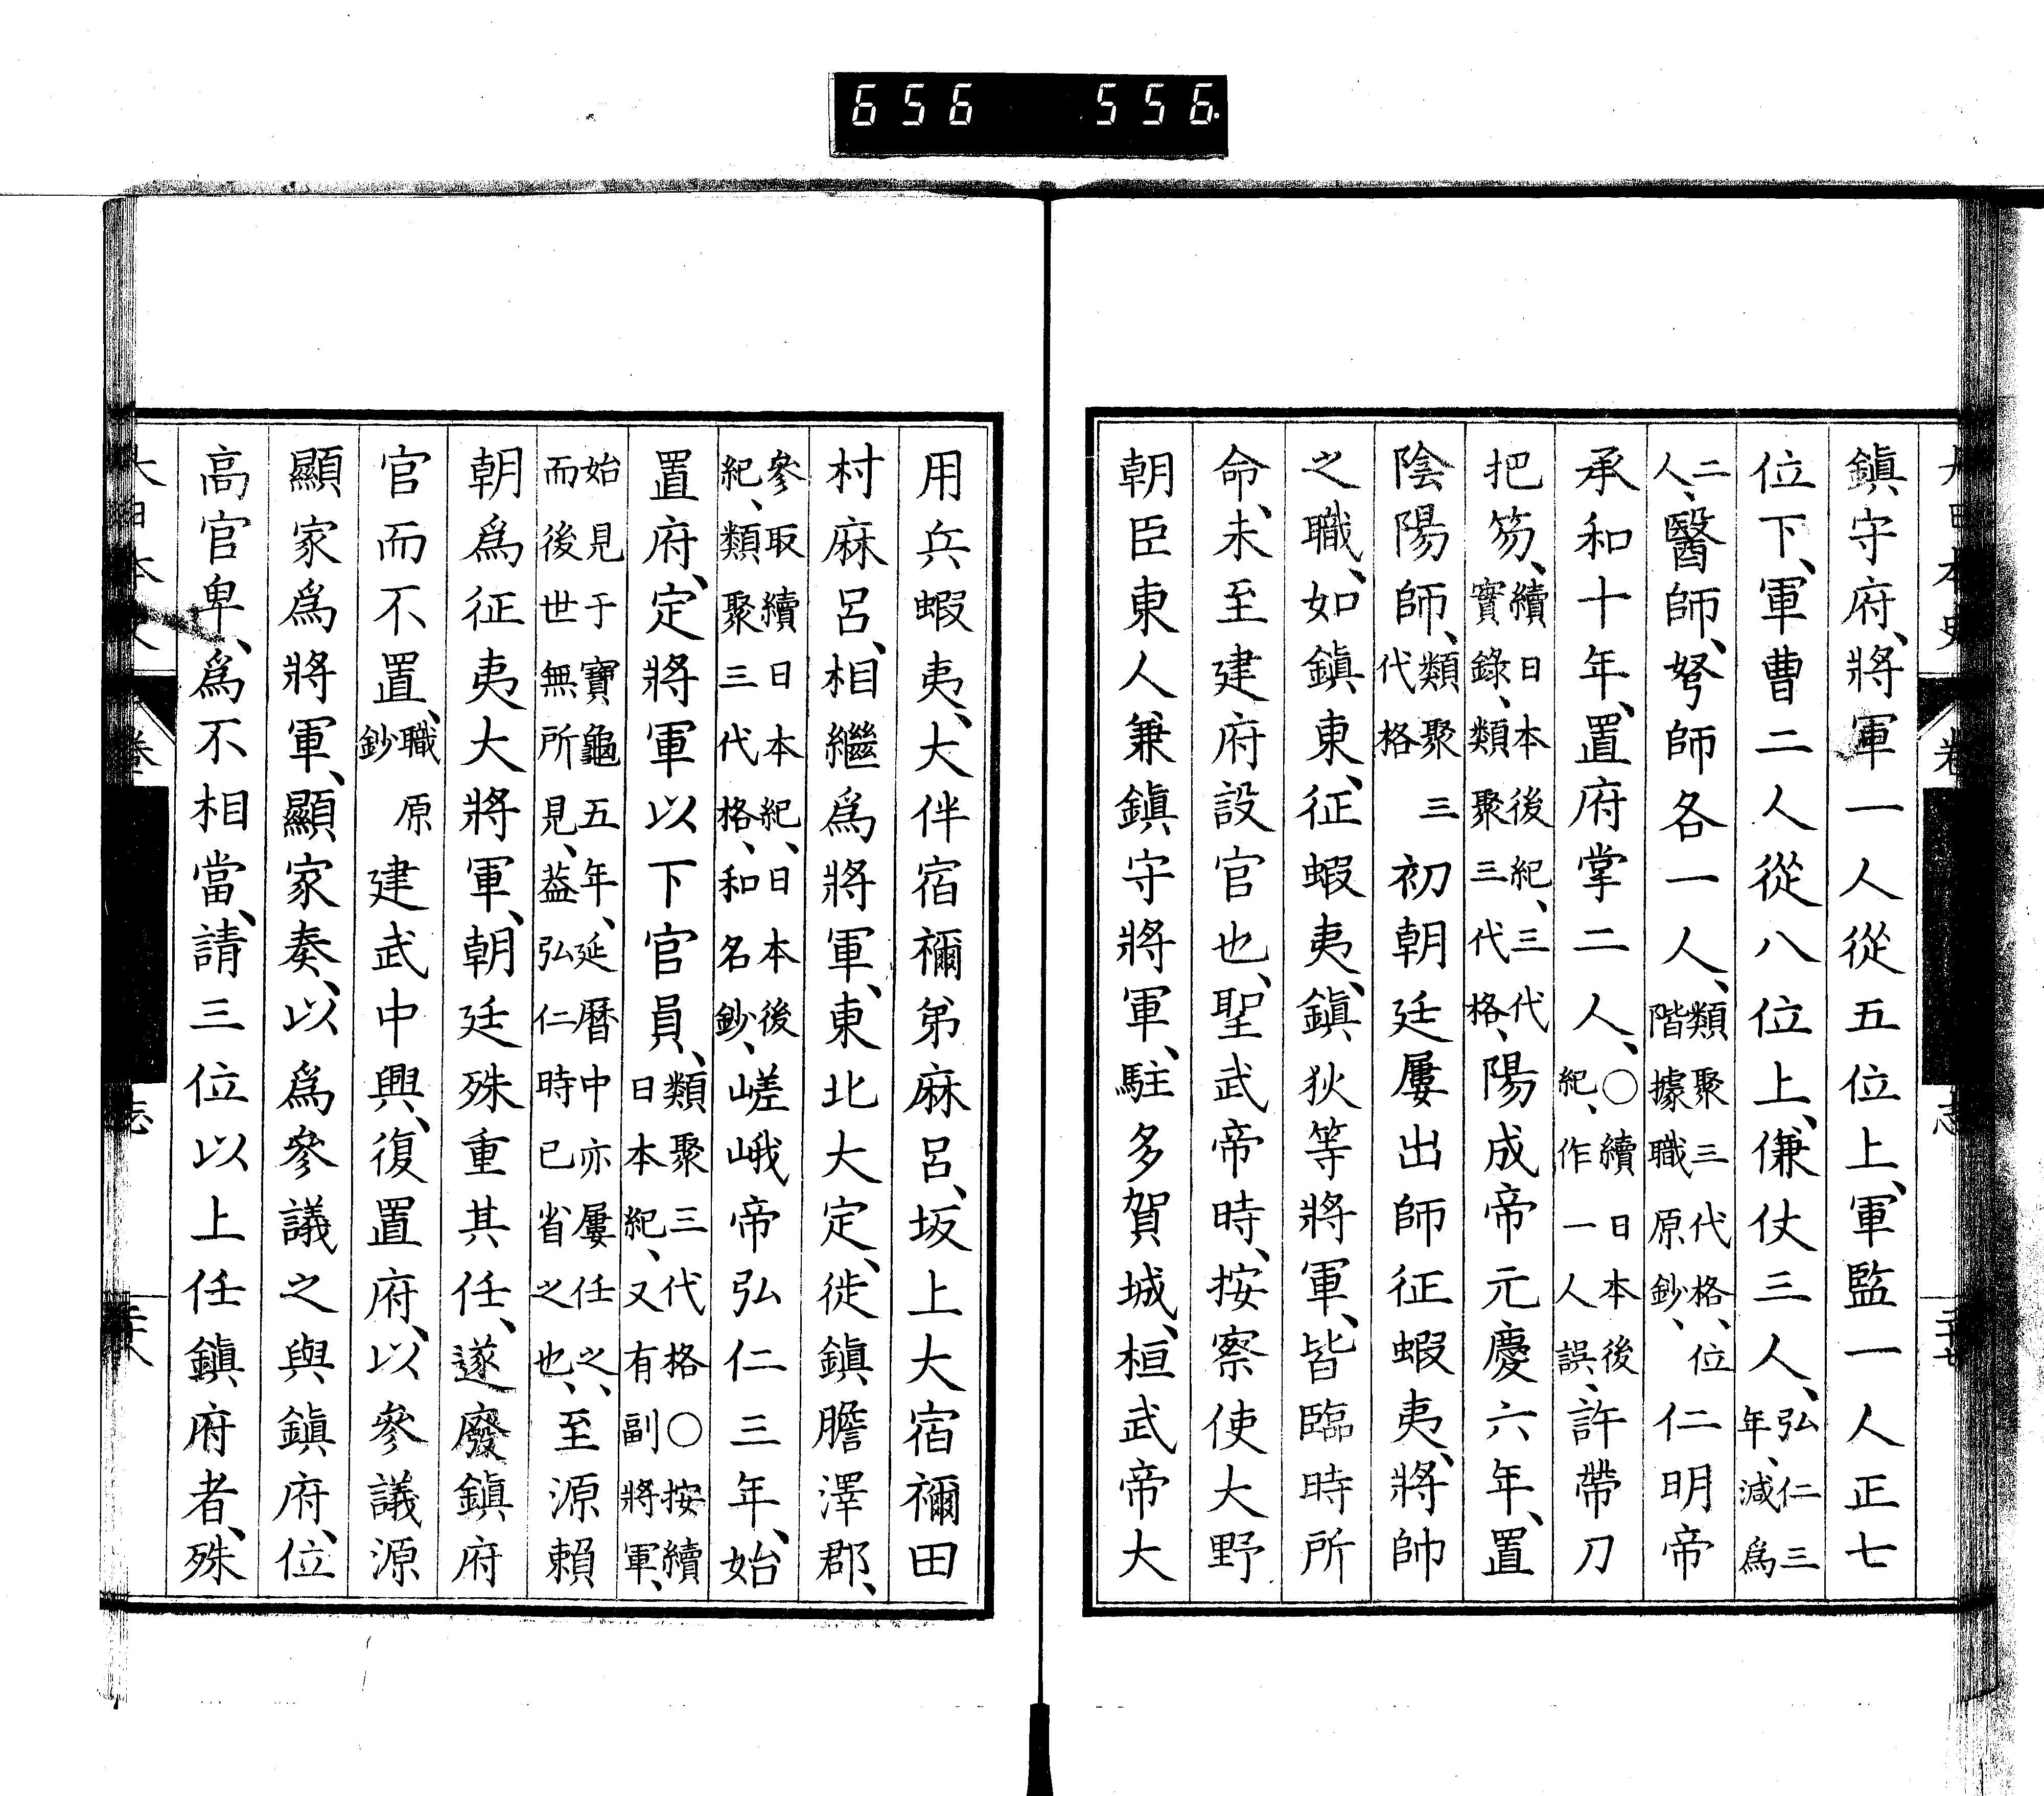 656 556.
大日本史
卷
志
二十七
鎭守府、將軍一人從五位上、軍監一人正七
位下、軍曹二人從八位上、傔仗三人、弘仁三年、減爲
二人、醫師、弩師各一人、類聚三代格、位階據職原鈔、仁明帝
承和十年、置府掌二人、○續日本後紀、作一人誤、許帶刀
把笏、續日本後紀、三代實錄、類聚三代格、陽成帝元慶六年、置
陰陽師、類聚三代格初朝廷屢出師征蝦夷、將帥
之職、如鎭東、征蝦夷、鎭狄等將軍、皆臨時所
命、未至建府設官也、聖武帝時、按察使大野
朝臣東人兼鎭守將軍、駐多賀城、桓武帝大
用兵蝦夷、大伴宿禰弟麻呂、坂上大宿禰田
村麻呂、相繼爲將軍、東北大定、徙鎭膽澤郡、
參取續日本紀、日本後紀、類聚三代格、和名鈔、嵯峨帝弘仁三年、始
置府、定將軍以下官員、類聚三代格○按續日本紀、又有副將軍、
始見于寶龜五年、延曆中亦屢任之、而後世無所見、蓋弘仁時已省之也、至源賴
朝爲征夷大將軍、朝廷殊重其任、遂廢鎭府
官而不置、職原鈔建武中興、復置府、以參議源
顯家爲將軍、顯家奏、以爲參議之與鎭府、位
高官卑、爲不相當、請三位以上任鎭府者、殊
大日本史
卷
志
二十八